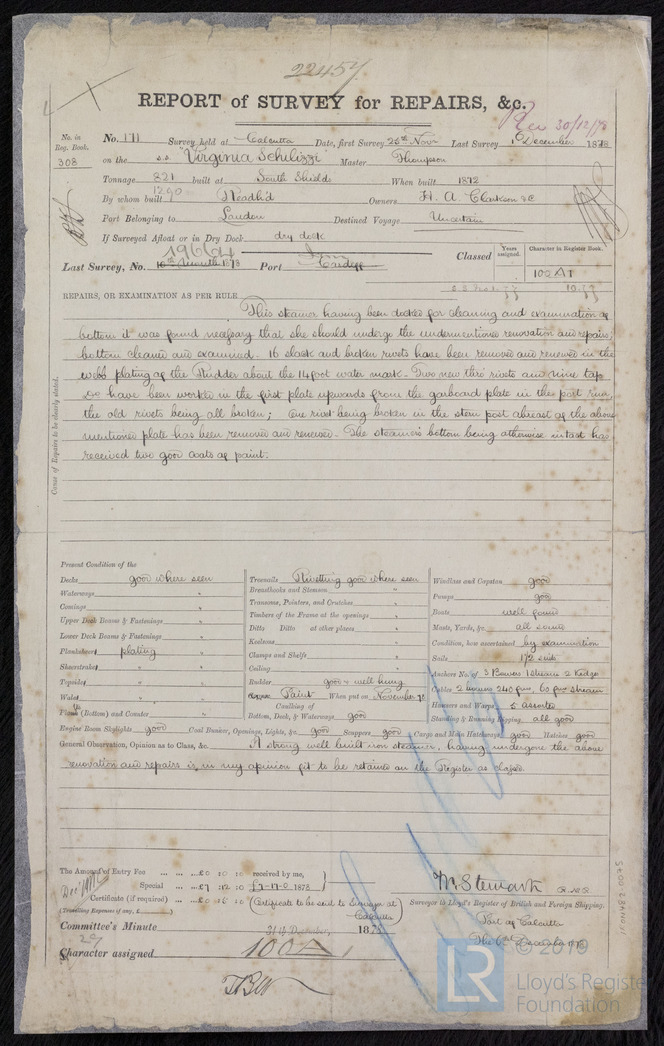 22457
REPORT of SURVEY for REPAIRS, &c.
Rec 30/12/78
No. in Reg. Book. 308
No. 171 Survey held at Calcutta Date, first Survey 25th Novr Last Survey December 1878
on the s.s. "Virginia Schilizzi" Master Thompson
Tonnage 821 built at South Shields When built 1872
1290
By whom built Readhd Owners H. A. Clarkson & C
Port Belonging to London Destined Voyage Uncertain
If Surveyed Afloat or in Dry Dock dry dock
Last Survey, No. 1878 Port Cardiff Classed
Years assigned.
Character in Register Book.
100A1
REPAIRS, OR EXAMINATION AS PER RULE
This steamer having been docked for cleaning and examination of
bottom it was found necessary that she should undergo the undermentioned renovation and repairs
bottom cleaned and examined. 16 slack and broken rivets have been removed and renewed in the
webb plating of the Rudder about the 14 foot water mark. Two new thro' rivets and nine tap
do have been worked in the first plate upwards from the garboard plate in the port run,
the old rivets being all broken; One rivet being broken in the stern post abreast of the above
mentioned plate has been removed and renewed. The steamer's bottom being otherwise intact has
received two good coats of paint.
Cause of Repairs to be clearly stated.
Present Condition of the
Decks good where seen
Waterways "
Comings "
Upper Deck Beams & Fastenings "
Lower Deck Beams & Fastenings "
Planksheers plating
Sheerstrakes "
Topsides "
Wales "
Plank (Bottom) and Counter "
Treenails Rivetting good where seen
Breasthooks and Stemson "
Transoms, Pointers, and Crutches "
Timbers of the Frame at the openings "
Ditto Ditto at other places "
Keelsons "
Clamps and Shelfs "
Ceiling "
Rudder good & well hung
Paint When put on November 78
Caulking of
Bottom, Deck, & Waterways good
Windlass and Capstan good
Pumps good
Boats well found
Masts, Yards, &c. all sound
Condition, how ascertained by examination
Sails 172 suits
Anchors No. of 3 Bowers 1 Stream 2 Kedge
Cables 2 240 fms, 60 fms stream
Hawsers and Warps 5 assorted
Standing & Running Rigging all good
Engine Room Skylights good Coal Bunker, Openings, Lights, &c. good Scuppers good Cargo and Main Hatchways good Hatches good
General Observation, Opinion as to Class, &c. A strong well built iron steamer, having undergone the above
renovation and repairs is in my opinion fit to be retained on the Register as classed.
The Amount of Entry Fee £0 : 0 : 0 received by me,
Special £7 : 12 : 0 1878
Certificate (if required) (Certificate to be sent to Surveyor at
Calcutta)
(Travelling Expenses if any, £ )
Committee's Minute 31st December, 1878
Character assigned 100A1
M. Stewart
Surveyor to Lloyd's Register of British and Foreign Shipping.
Port of Calcutta
The 6th December 1878
LR
© 2019
Lloyd's Register
Foundation